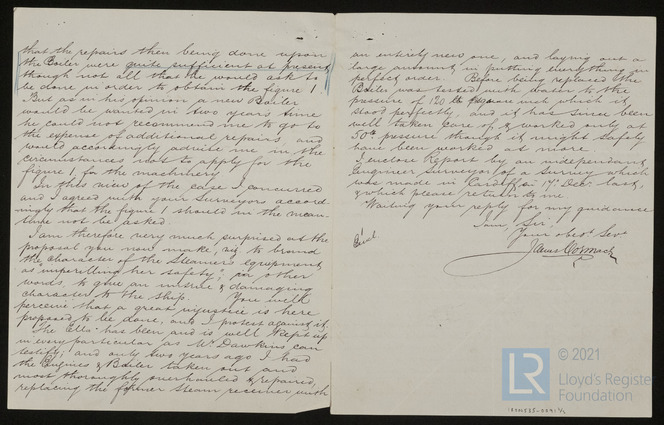 that the repairs then being done upon
the Boiler were quite sufficient at present
though not all that he would ask to
be done in order to obtain the figure 1.
But as in his opinion a new Boiler
would be wanted in two years time
he could not recommend me to go to
the expense of additional repairs, and
would accordingly advise me in the
circumstances not to apply for the
figure 1 for the machinery
In this view of the case I concurred
and I agreed with your Surveyors accord-
ingly that the figure 1 should in the mean-
time not be asked.
I am therefore very much surprised at the
proposal you now make, viz to brand
the character of the Steamers equipment
as "imperilling her safety", in other
words, to give an untrue & damaging
character to the ship. You will
perceive that a great injustice is here
proposed to be done, and I protest against it.
The "Ella" has been and is well kept up
in every particular as Mr Dawkins can
testify; and only two years ago I had
the Engines & Boiler taken out and
most thoroughly overhauled & repaired,
replacing the former Steam receiver with
an entirely new one, and laying out a
large amount in putting everything in
perfect order. Before being replaced the
Boiler was tested with water to the
pressure of 120 lb square inch which it
stood perfectly, and it has since been
well taken care of, & worked only at
50 lb pressure though it might safely
have been worked at more.
I enclose Report by an independent
Engineer Surveyor of a Survey which
was made in Cardiff on 17 Decr last,
& which please return to me
Waiting your reply for my guidance
I am, Sir,
Your obedt Servt
James Cormack
Encl
© 2021
LR
Lloyd's Register
Foundation